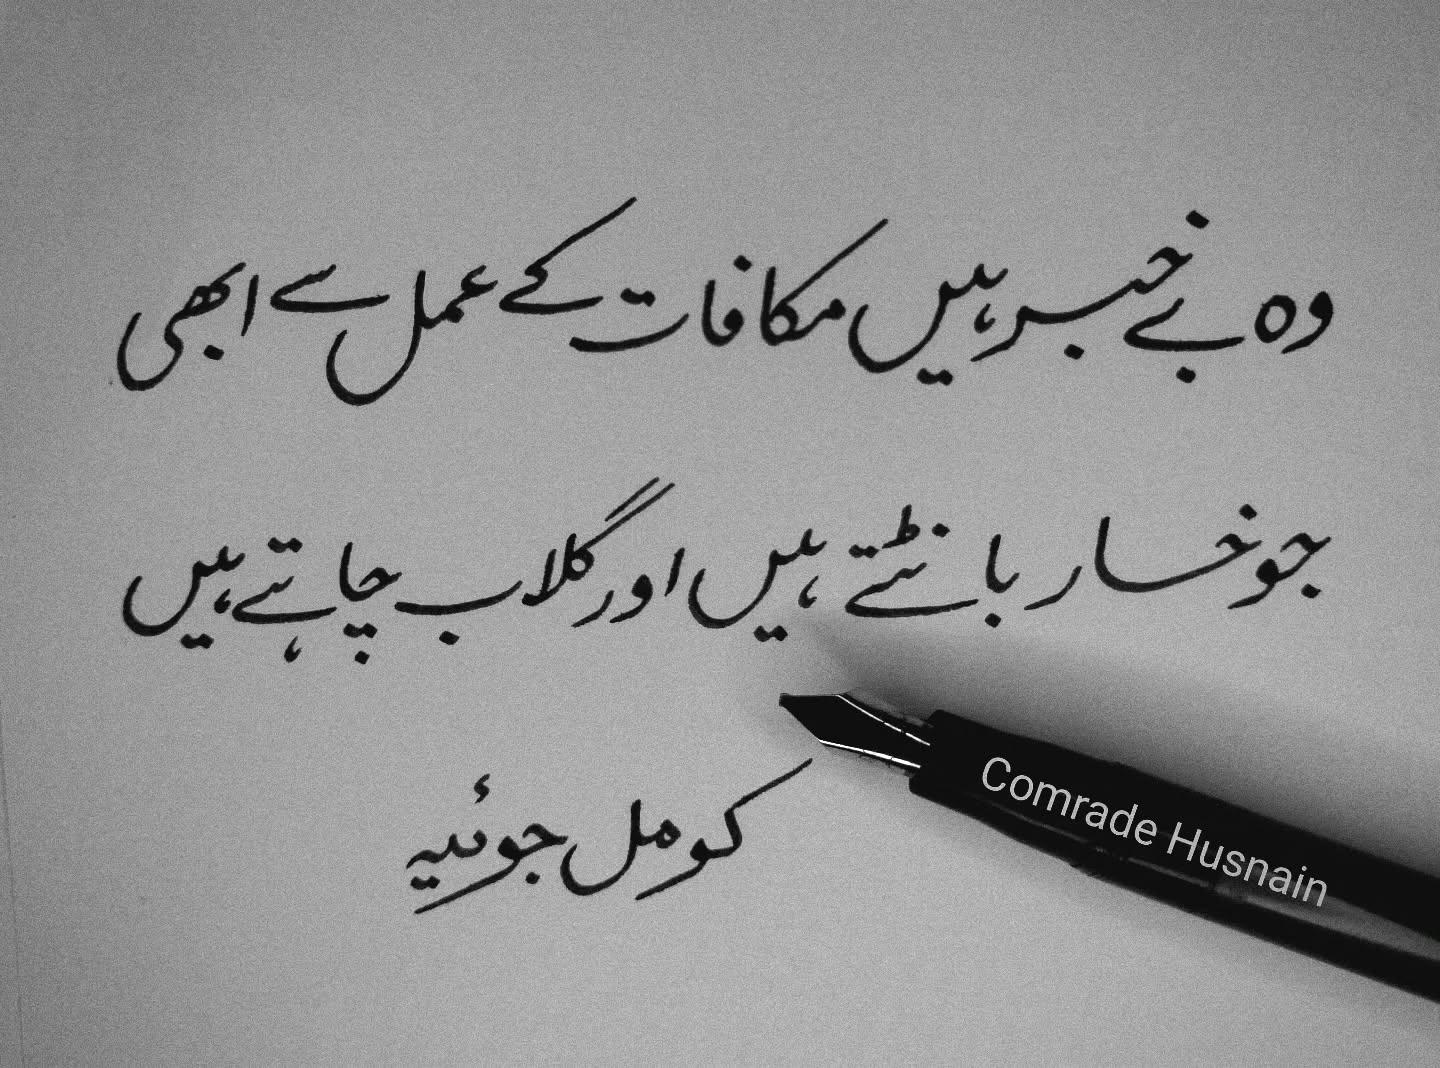 وہ بے خبر ہیں مکافات کے عمل سے ابھی
جو خسار بانٹتے ہیں اور گلاب چاہتے ہیں
کومل جوئیہ
Comrade Husnain